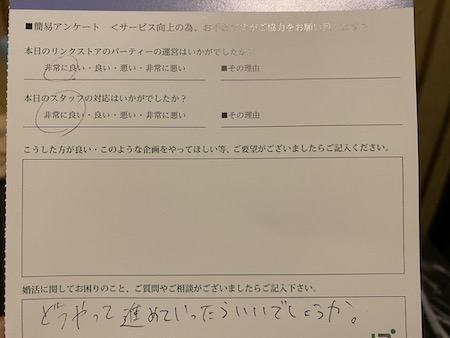 ■簡易アンケート ＜サービス向上の為、お手数ですがご協力をお願い致します＞
本日のリンクストアのパーティーの運営はいかがでしたか？
非常に良い・良い・悪い・非常に悪い ■その理由
本日のスタッフの対応はいかがでしたか？
非常に良い・良い・悪い・非常に悪い ■その理由
こうした方が良い・このような企画をやってほしい等、ご要望がございましたらご記入ください。
婚活に関してお困りのこと、ご質問やご相談がございましたらご記入下さい。
どうやって進めていったらいいでしょうか。